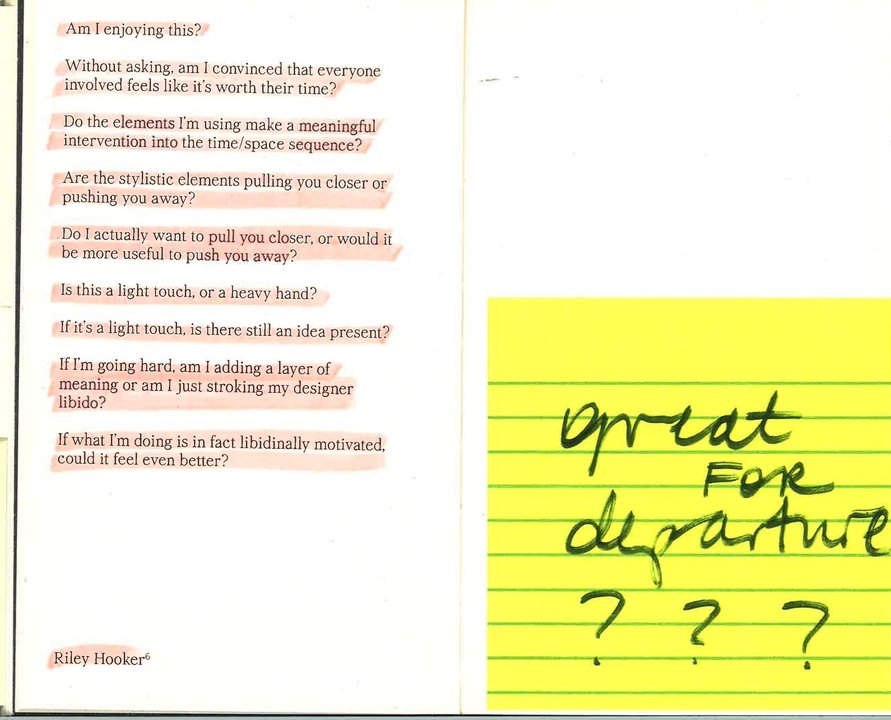 Am I enjoying this?
Without asking, am I convinced that everyone
involved feels like it's worth their time?
Do the elements I'm using make a meaningful
intervention into the time/space sequence?
Are the stylistic elements pulling you closer or
pushing you away?
Do I actually want to pull you closer, or would it
be more useful to push you away?
Is this a light touch, or a heavy hand?
If it's a light touch, is there still an idea present?
If I'm going hard, am I adding a layer of
meaning or am I just stroking my designer
libido?
If what I'm doing is in fact libidinally motivated,
could it feel even better?
Riley Hooker⁶
great
FOR
departure
? ? ?